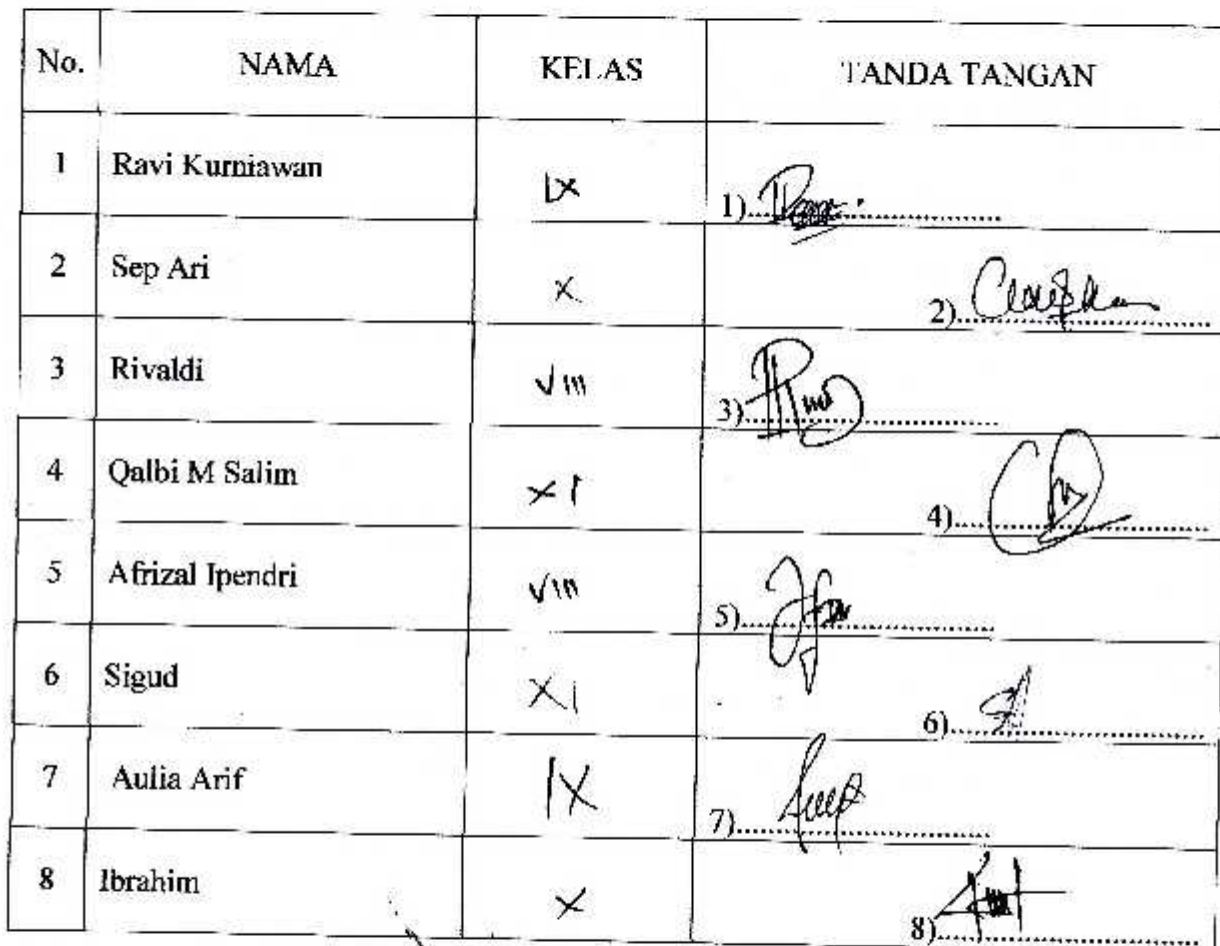 No. NAMA KELAS TANDA TANGAN
1 Ravi Kurniawan IX 1)
2 Sep Ari X 2)
3 Rivaldi VIII 3)
4 Qalbi M Salim XI 4)
5 Afrizal Ipendri VIII 5)
6 Sigud XI 6)
7 Aulia Arif IX 7)
8 Ibrahim X 8)